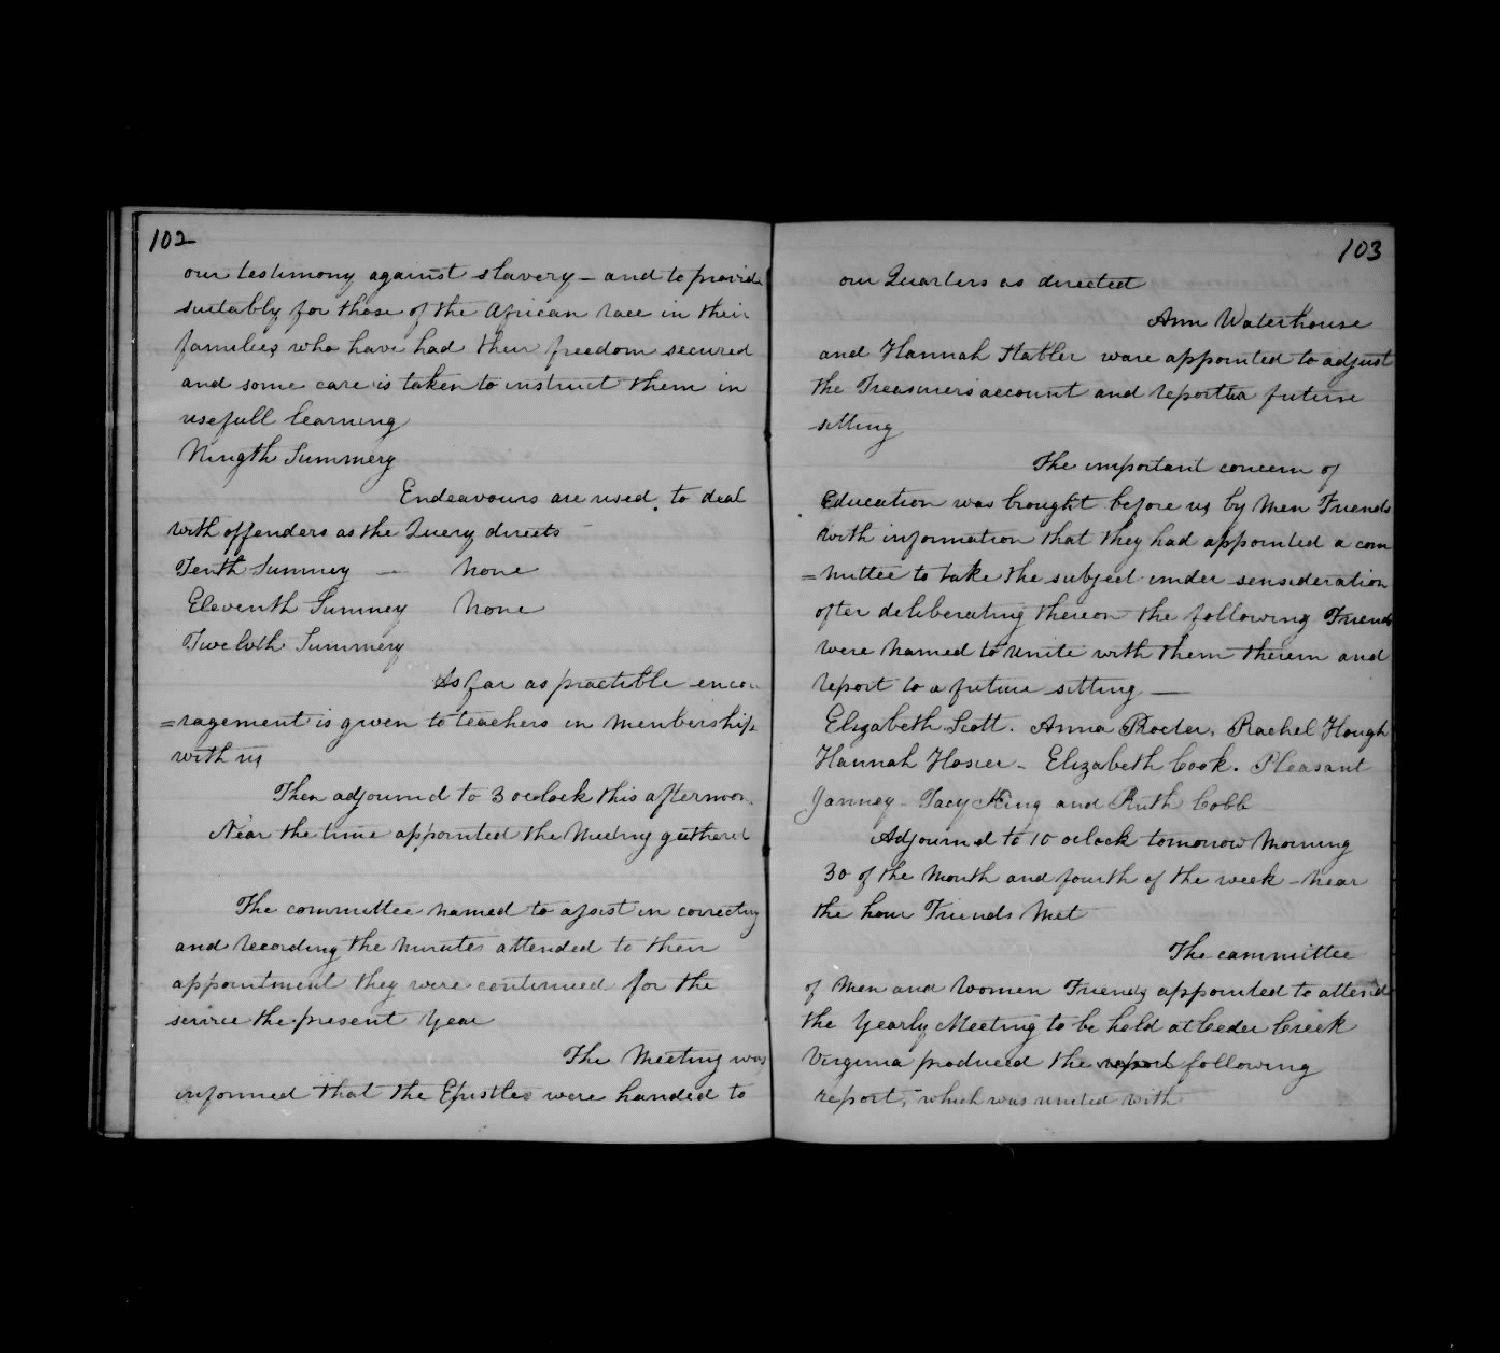 102
our testimony against slavery – and to provide
suitably for those of the African race in their
families who have had their freedom secured
and some care is taken to instruct them in
usefull learning
Ningth Summery
Endeavours are used to deal
with offenders as the Query directs –
Tenth Summey — None
Eleventh Summey None
Twelvth Summery
As far as practible encou
=ragement is given to teachers in membership
with us
Then adjournd to 3 oclock this afternoon
Near the time appointed the Meeting gathered
The committee named to assist in correcting
and recording the minutes attended to their
appointment they were continued for the
service the present Year
The Meeting was
informed that the Epistles were handed to
103
our Quarters as directed
Ann Waterhouse
and Hannah Stabler ware appointed to adjust
the Treasurers account and report to a future
sitting
The important concern of
Education was brought before us by Men Friends
with information that they had appointed a com
=mittee to take the subject under sensideration
after deliberating thereon the following Friends
were named to unite with them therein and
report to a future sitting —
Elizabeth Scott. Anna Procter, Rachel Hough
Hannah Hosier – Elizabeth Cook. Pleasant
Janney – Tacy King and Ruth Cobb
Adjournd to 10 oclock tomorrow Morning
30 of the Month and fourth of the week – Near
the hour Friends Met
The committee
of Men and Women Friends appointed to attend
the Yearly Meeting to be held at Ceder Creek
Virginia produced the report following
report, which was united with